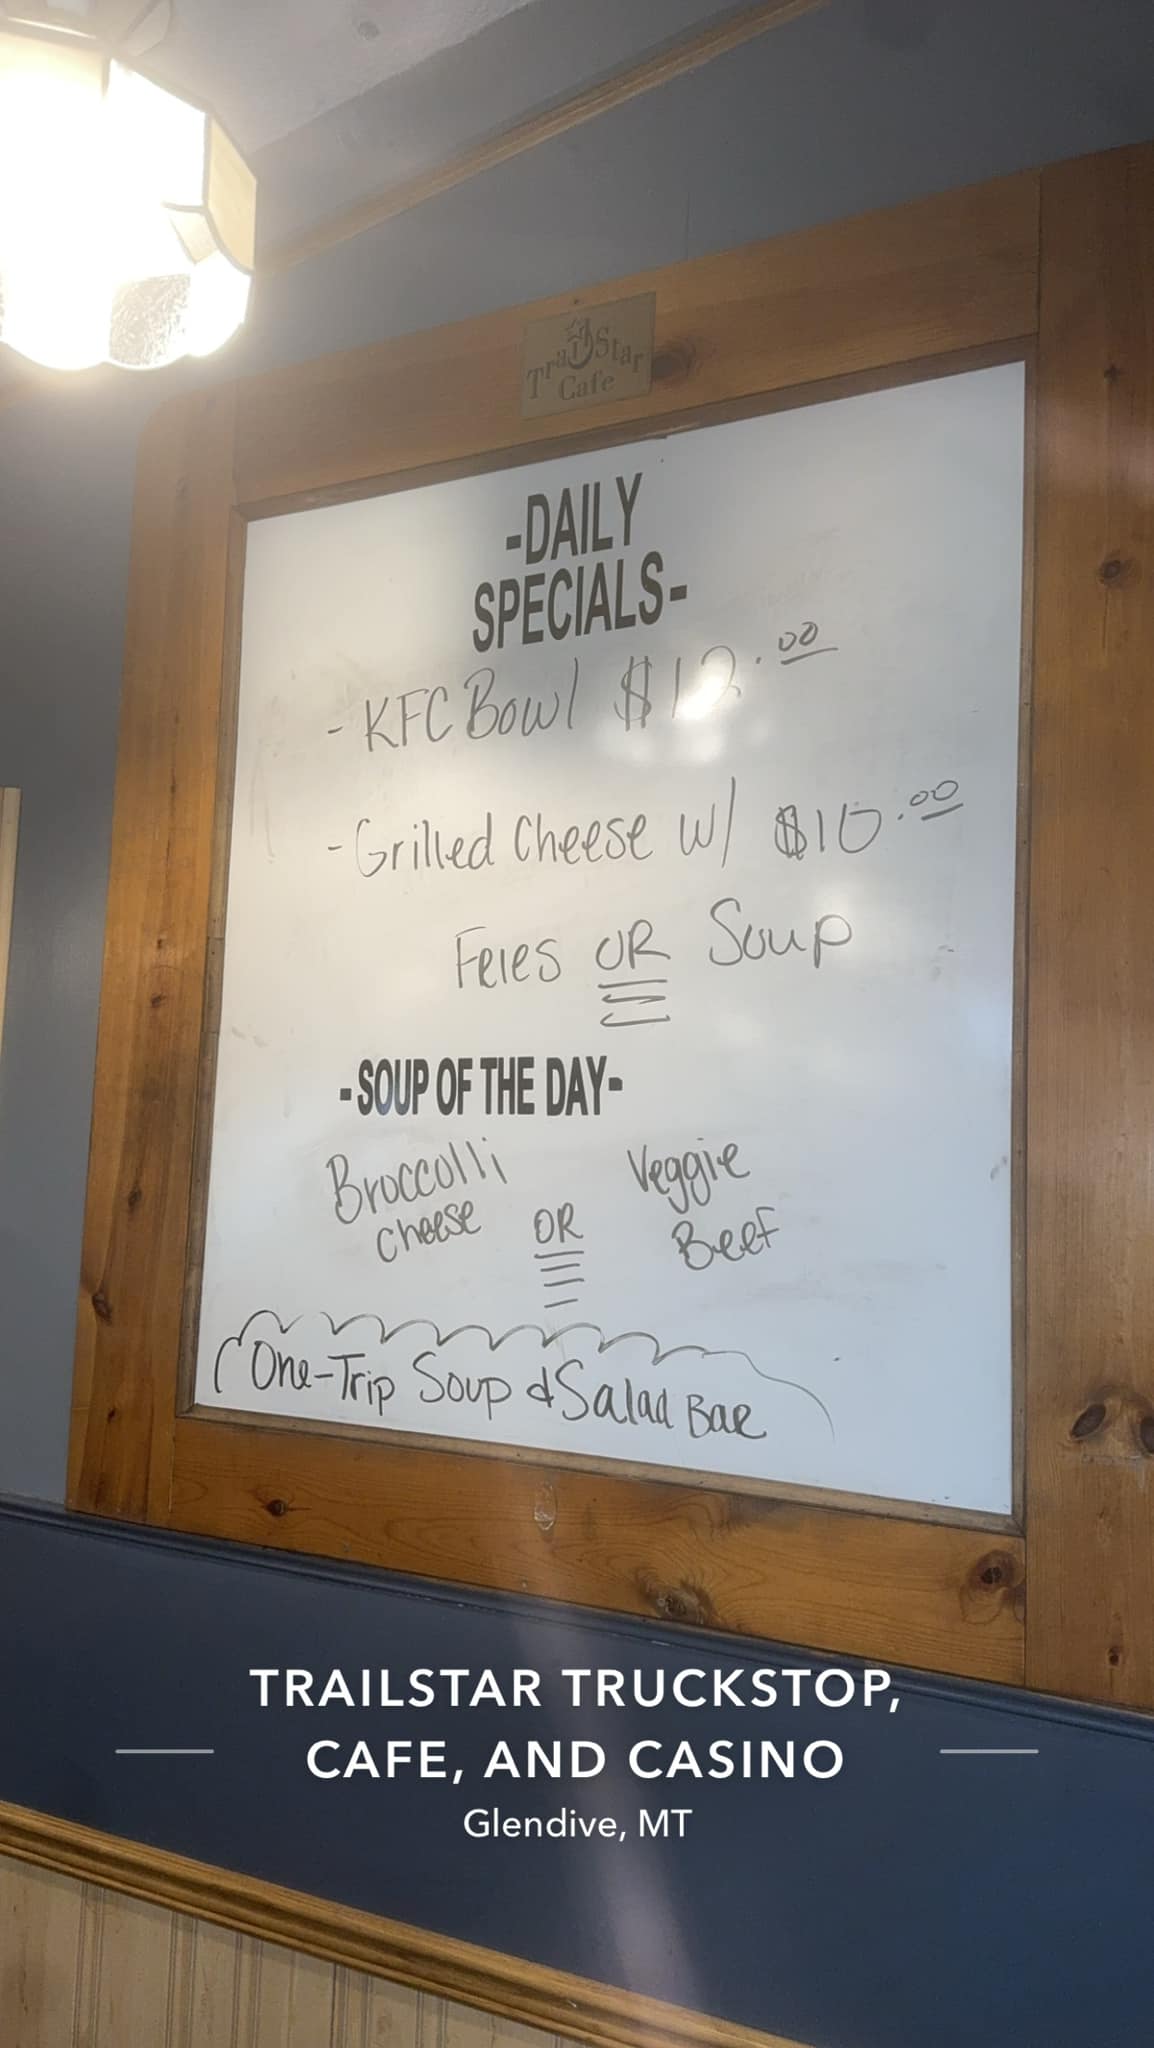 TrailStar
Cafe
-DAILY
SPECIALS-
- KFC Bowl $12.00
- Grilled Cheese w/ $10.00
Fries OR Soup
-SOUP OF THE DAY-
Broccolli
cheese OR Veggie
Beef
One-Trip Soup & Salad Bar
TRAILSTAR TRUCKSTOP,
CAFE, AND CASINO
Glendive, MT